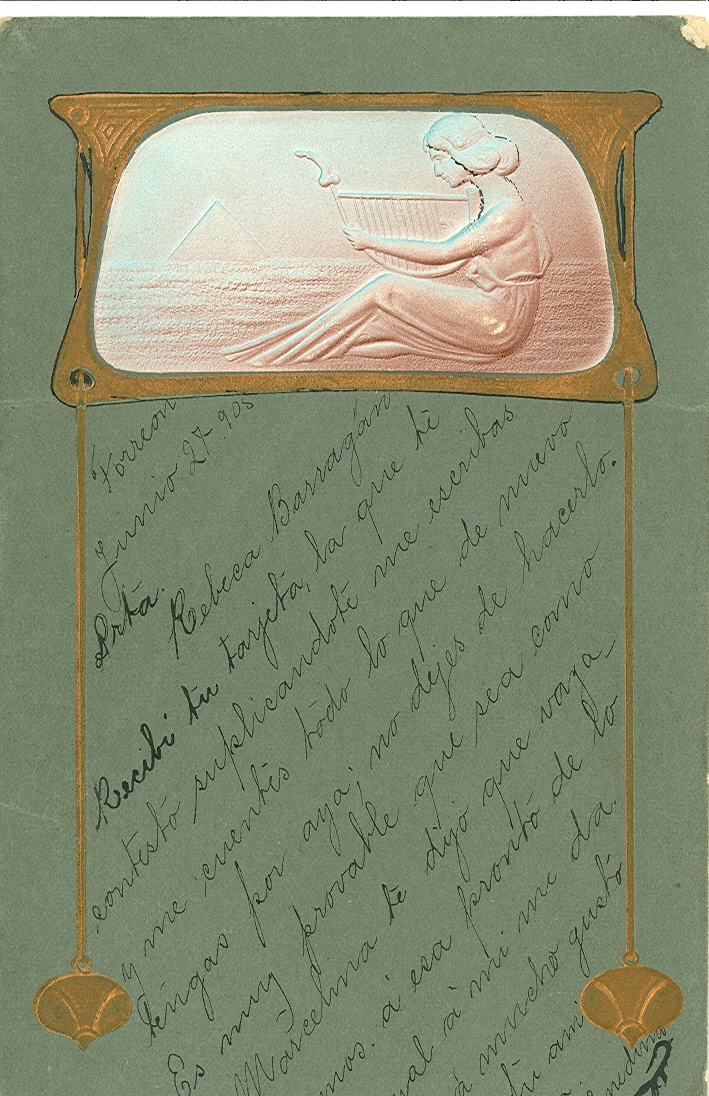 Torreon
Junio 27-905
Srta.
Rebeca Barragán
Recibi tu tarjeta, la que te
contesto suplicandote me escribas
y me cuentes todo lo que de nuevo
tengas por aya; no dejes de hacerlo.
Es muy provable que sea como
Marcelina te dijo que vaya-
mos. á esa pronto de lo
ual á mi me da.
á mucho gusto
tu ami